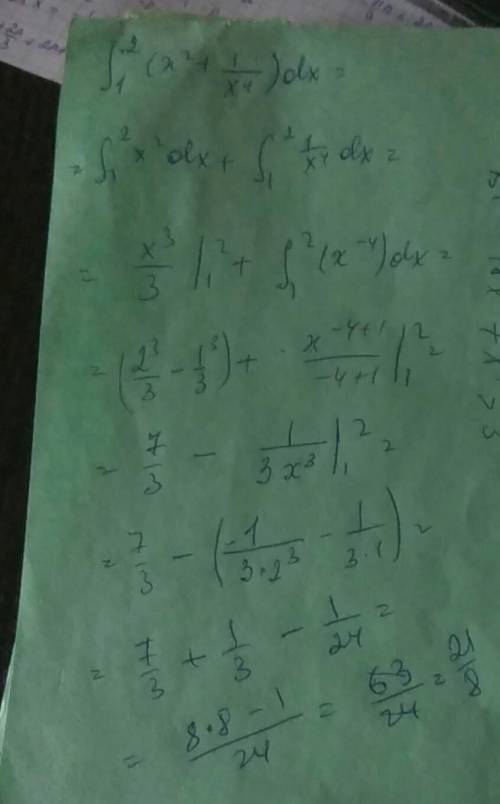 ∫₁² (x² + 1/x⁴) dx =
= ∫₁² x² dx + ∫₁² 1/x⁴ dx =
= x³/3 |₁² + ∫₁² (x⁻⁴) dx =
= (2³/3 - 1³/3) + x⁻⁴⁺¹/-4+1 |₁² =
= 7/3 - 1/3x³ |₁² =
= 7/3 - (-1/3·2³ - 1/3·1) =
= 7/3 + 1/3 - 1/24 =
= 8·8-1/24 = 63/24 = 21/8